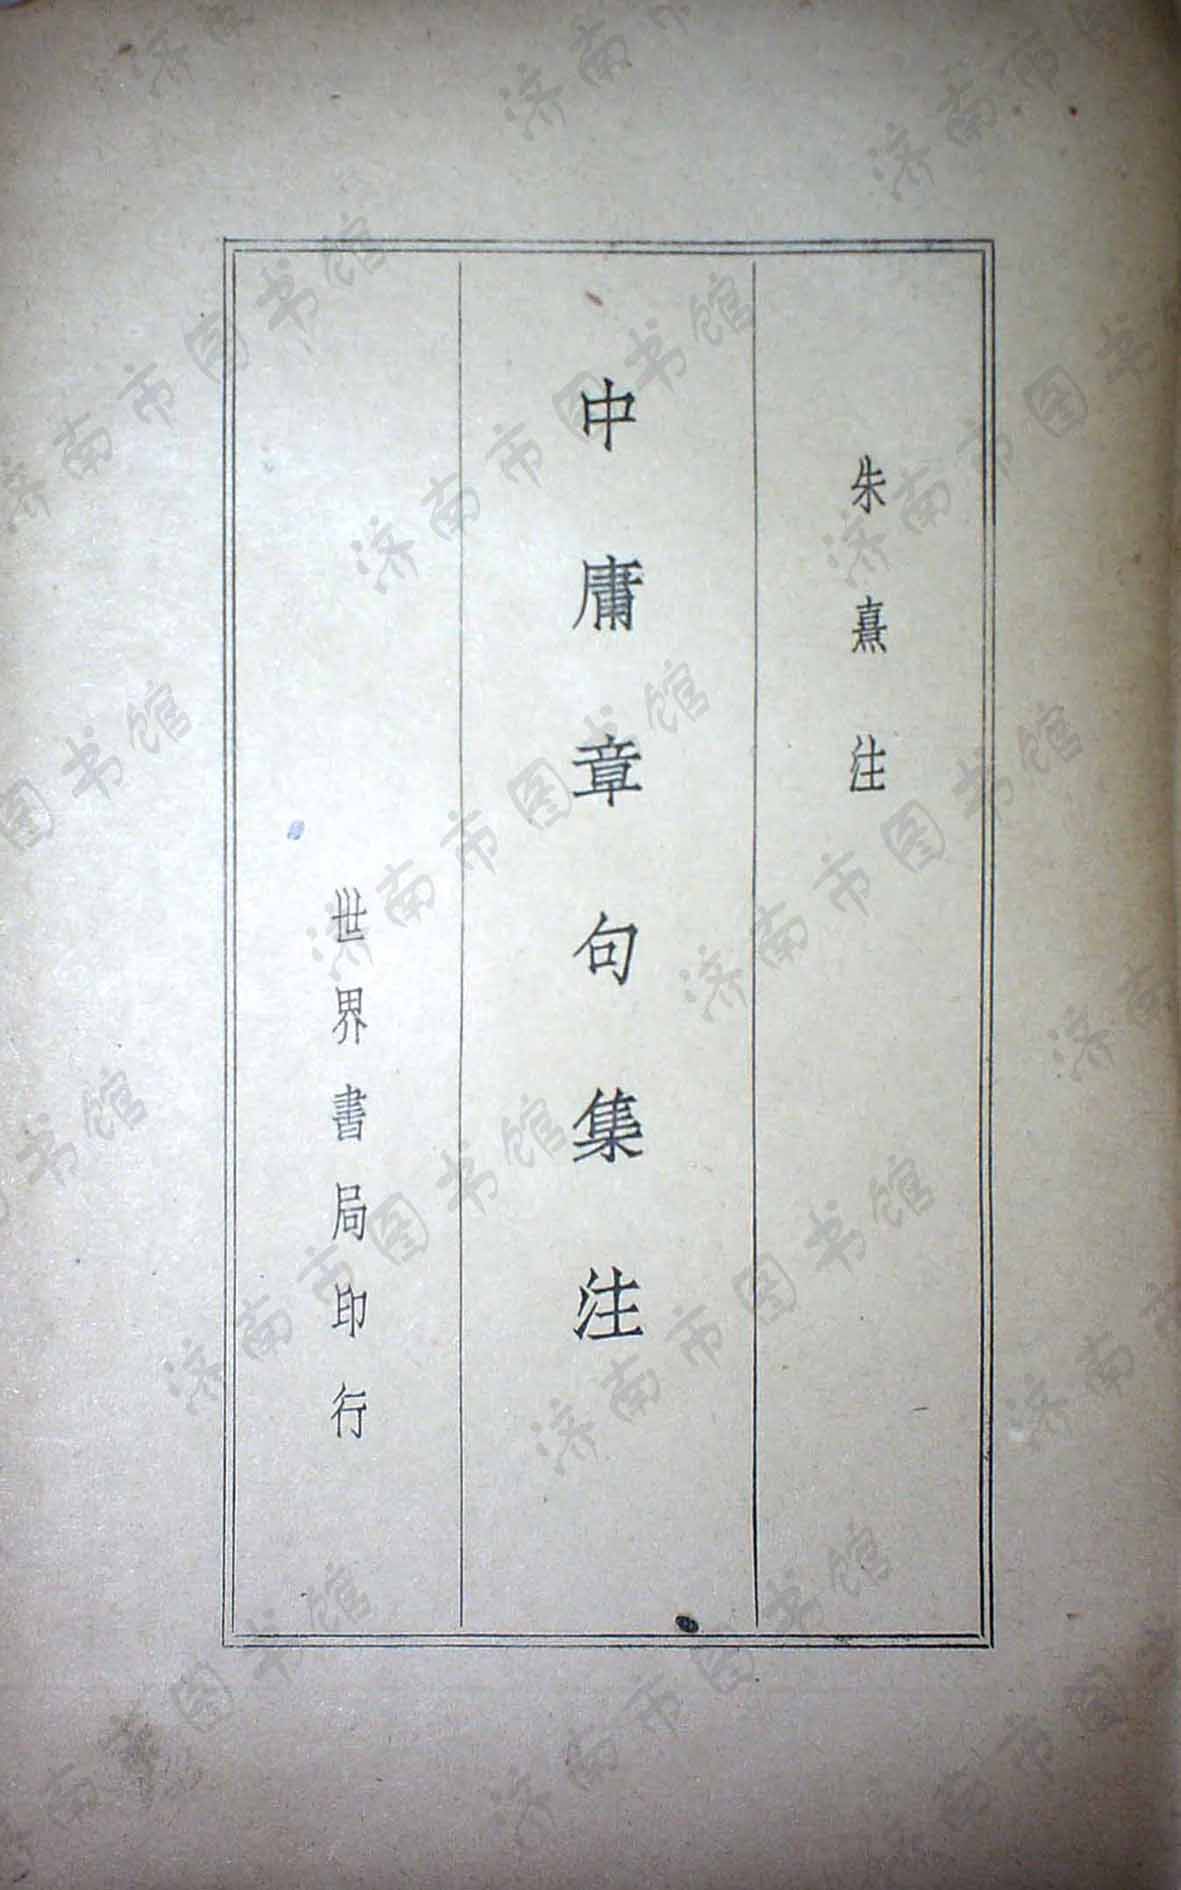 朱熹注
中庸章句集注
世界書局印行
济南市图书馆